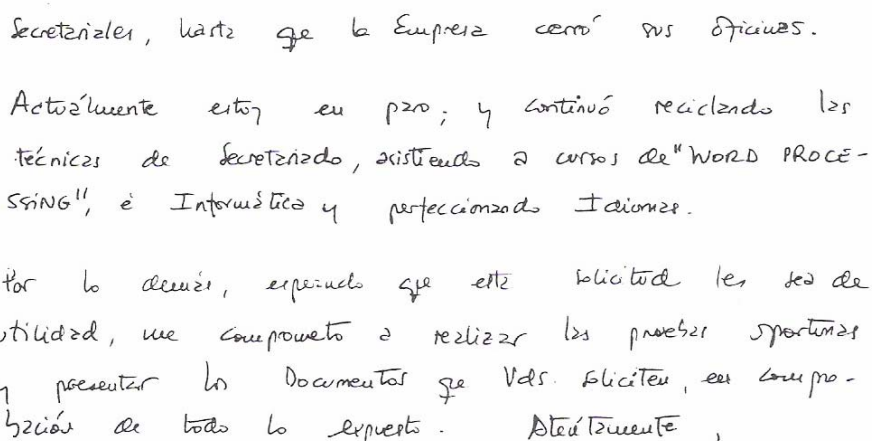 Secretariales, hasta que la Empresa cerró sus oficinas.
Actuálmente estoy en paro; y continuó reciclando las
técnicas de Secretariado, asistiendo a cursos de "WORD PROCE-
SSiNG", é Informática y perfeccionando Idiomas.
Por lo demás, esperando que esta solicitud les sea de
utilidad, me comprometo a realizar las pruebas oportunas
y presentar los Documentos que Vds. soliciten, en compro-
bación de todo lo expuesto. Aténtamente,